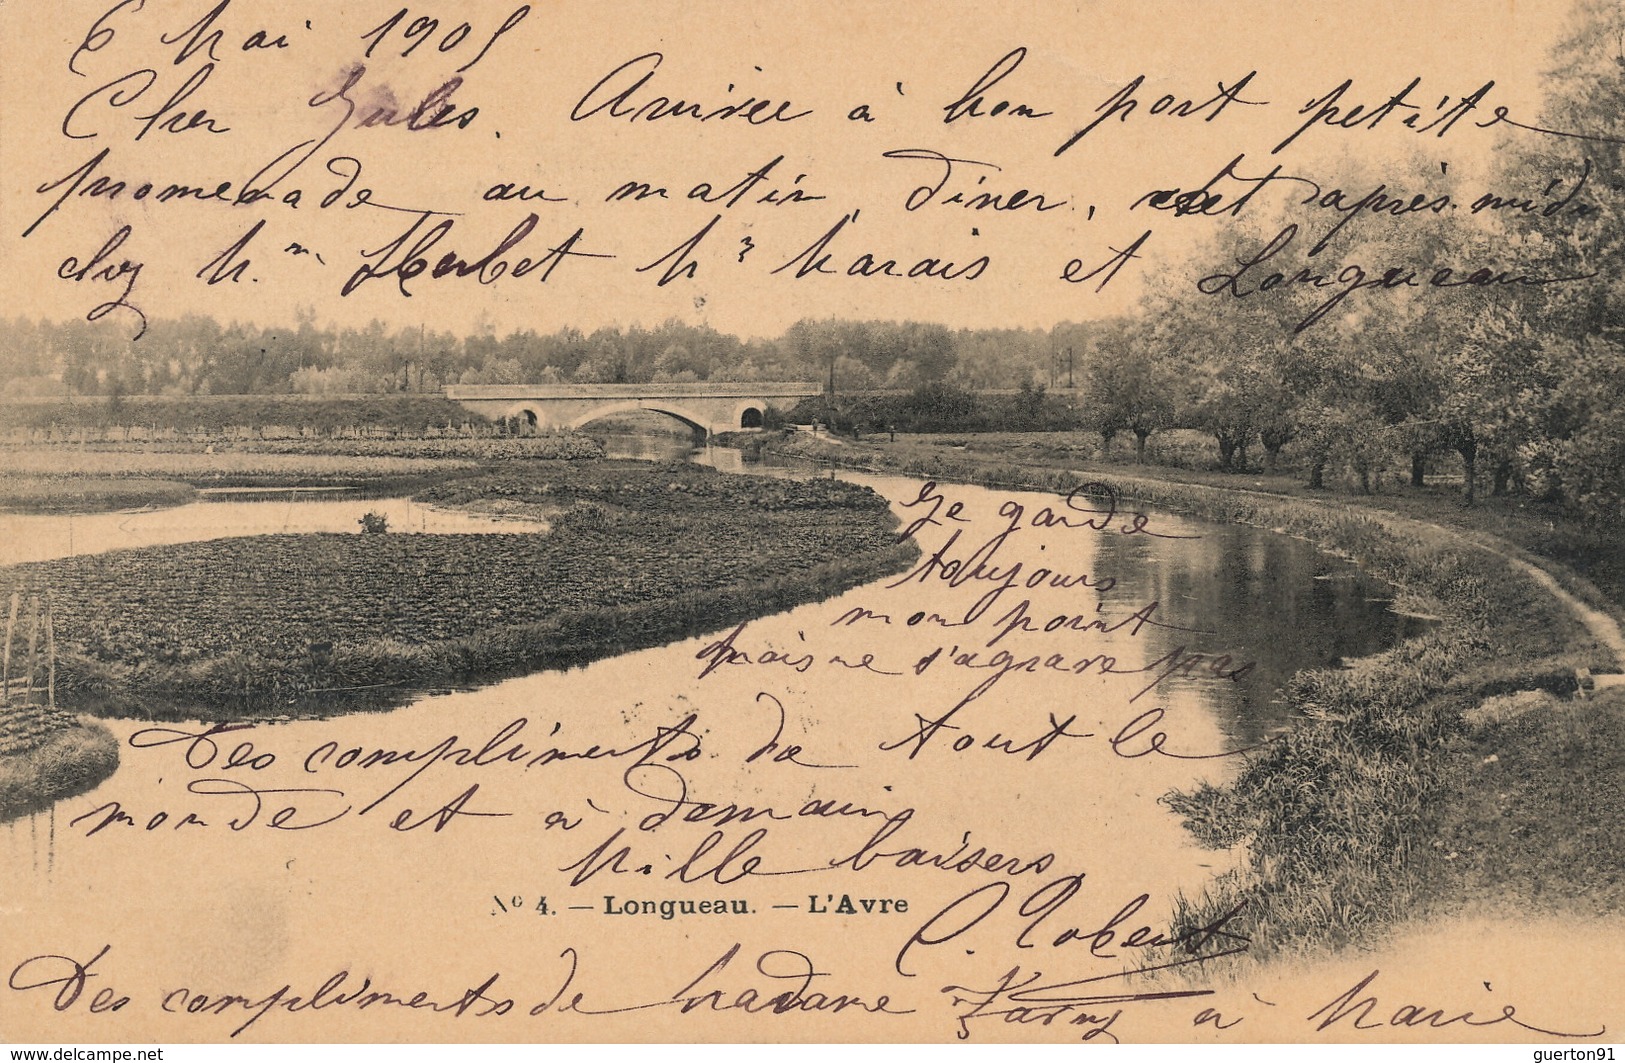 6 Mai 1905
Cher Jules. Arrivée à bon port petite
promenade au matin, diner, et après midi
chez Mme Herbet Mr Marais et Longueau
Je garde
toujours
mon point
mais ne s'agrave pas
Des compliments de tout le
monde et à demain
Mille baisers
No 4. — Longueau. — L'Avre
C. Robert
Des compliments de Madame à Marie
www.delcampe.net
guerton91